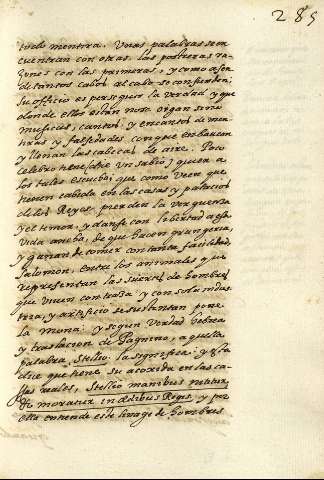 285
tuelo mentira. Unas palabras se en
cuentran con otras, las postreras ra
zones con las primeras, y como a son
de tantos cabos al cabo se confunden;
Su officio es perseguir la verdad y que
donde ellos están no se oygan sino
musicas, cantos, y encantos de men
tiras y falsedades con que embaucan
y llenan las cabezas de aire. Poco
celebro tiene (dice un sabio) quien a
los tales escucha; que como veen que
tienen cabida en las casas y palacios
de los Reyes, pierden la verguenza
y el temor, y danse con libertad a esta
vida ancha, de que hacen grangeria,
y ganan de comer con tanta facilidad.
Salomon, entre los animales que
representan las suertes de hombres
que viven con traza y con sola indus
tria, y artificio se sustentan pone
la mona: y segun verdad hebrea
y translacion de Pagnino, aquella
palabra Stellio la significa: y esta
dice que tiene su acogida en las ca
sas reales, Stellio manibus nititur
et moratur in ædibus Regis, y por
ella entiende este linage de hombres